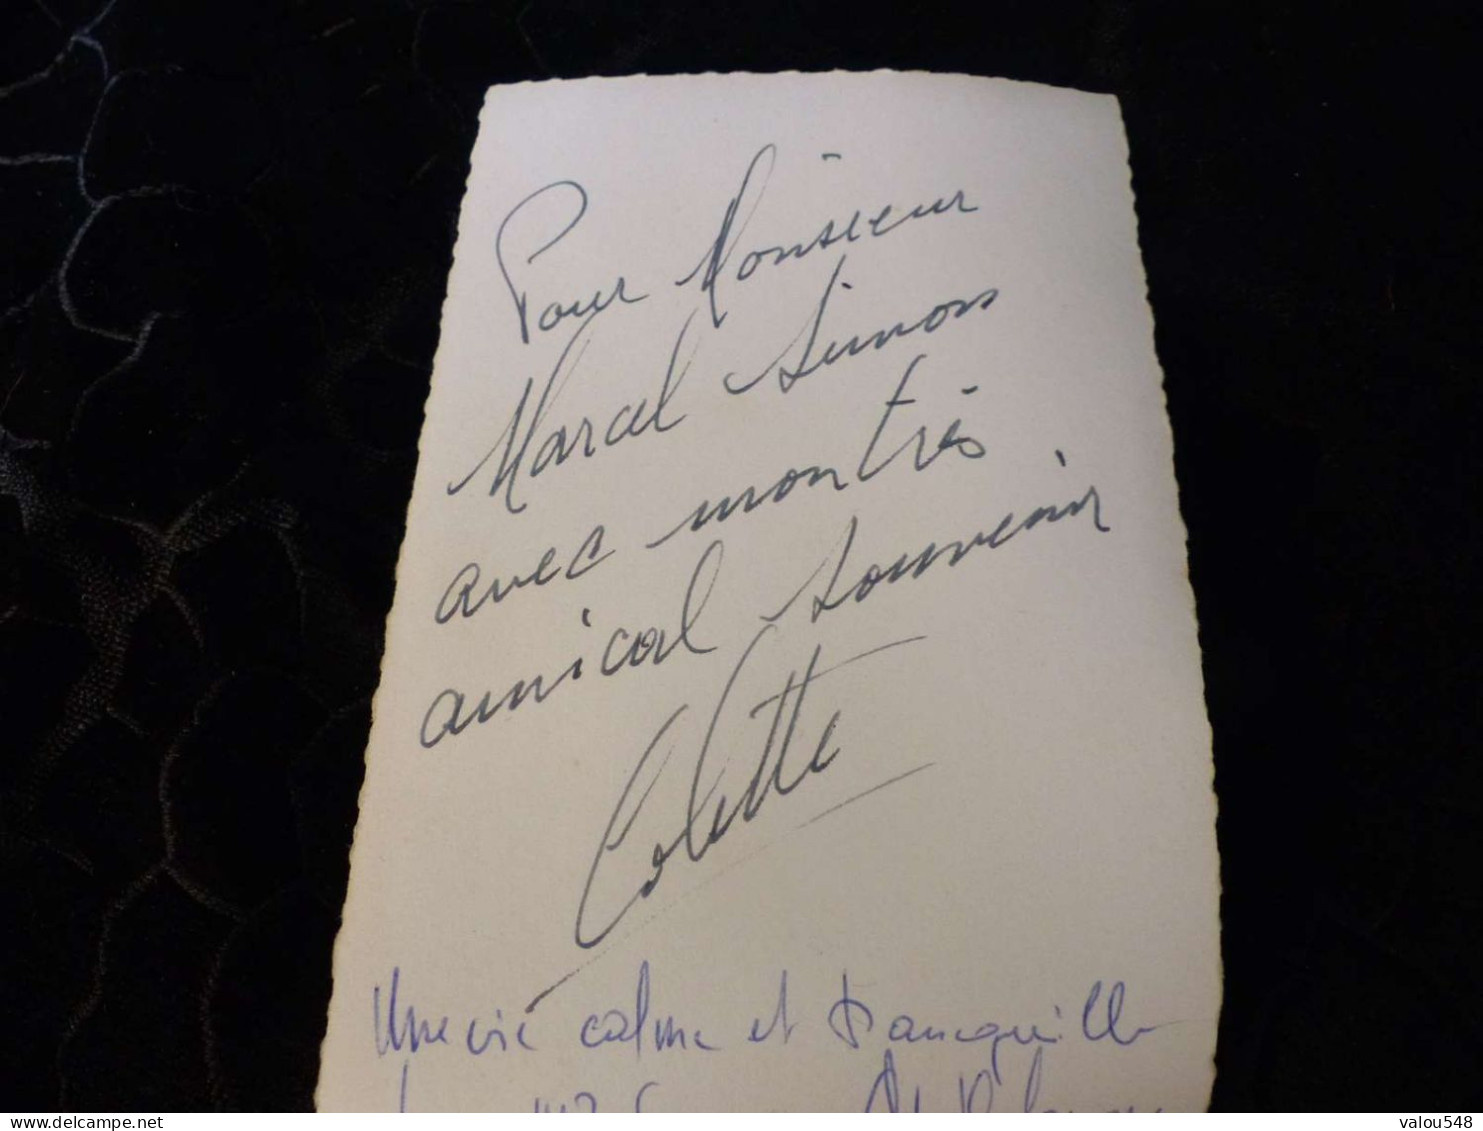 Pour Monsieur
Marcel Simon
avec mon très
amical souvenir
Colette
Une vie calme et tranquille
valou548